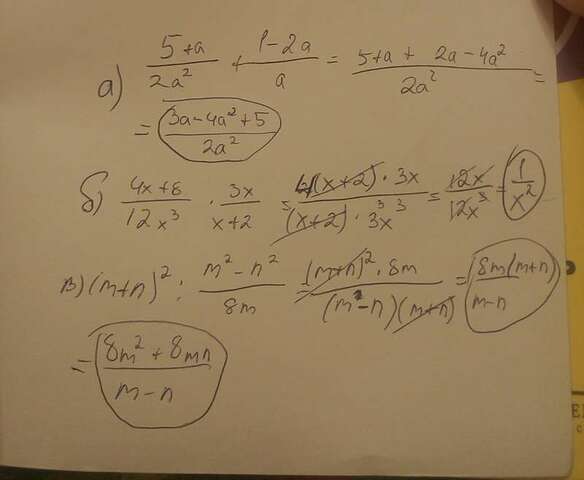 а) (5+a)/(2a²) + (1-2a)/a = (5+a + 2a-4a²)/(2a²) =
= (3a-4a²+5)/(2a²)
б) (4x+8)/(12x³) · (3x)/(x+2) = (4(x+2)·3x)/((x+2)·3x³) = (12x)/(12x³) = 1/x²
в) (m+n)² : (m²-n²)/(8m) = ((m+n)²·8m)/((m-n)(m+n)) = (8m(m+n))/(m-n)
= (8m²+8mn)/(m-n)